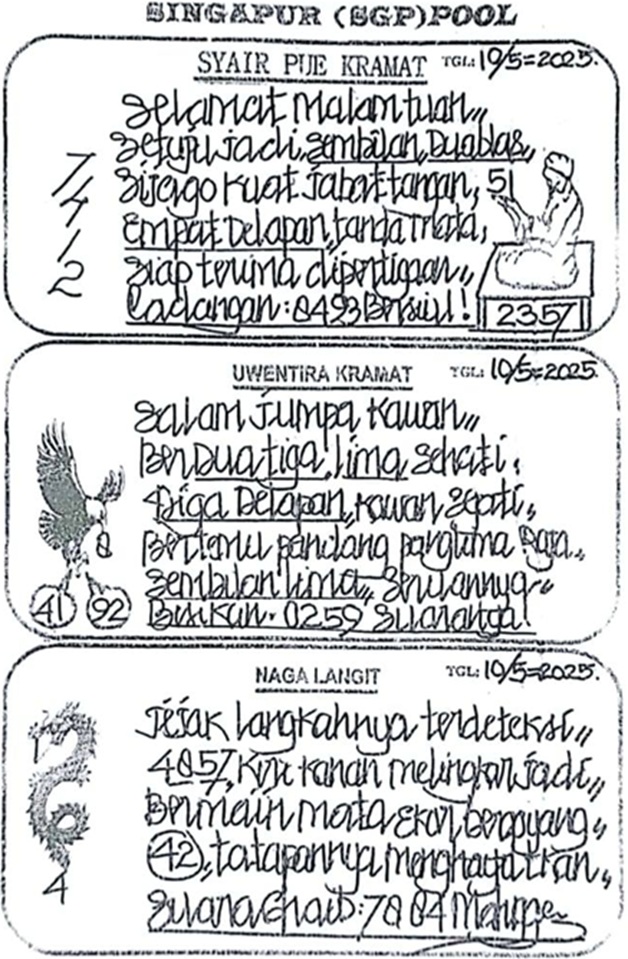 SINGAPUR (SGP) POOL
SYAIR PUE KRAMAT TGL: 10/5=2025.
Selamat malam tuan,,
Setuju jadi, sembilan, Duablas,
Sijago kuat jabat tangan, 51
Empat Delapan, tanda mata,
Siap terima dipertigaan,,
Cadangan: 8493 Bersiul!
7/4/1/2
2357
UWENTIRA KRAMAT TGL: 10/5=2025.
Salam jumpa kawan,,
Ber Dua tiga, lima sehati,
Tiga Delapan, kawan sejati,
Bertemu pandang panglima Raja,,
Sembilan lima,, Serulannya
Bisikan: 0259 Suaranga!
8
41 92
NAGA LANGIT TGL: 10/5=2025.
Jejak langkahnya terdeteksi,,
4857, Kiri kanan melingkar jadi,,
Bermain mata Ekor bergoyang,,
42, tatapannya menghayatkan,,
Suara Ghaib: 7884
126
4